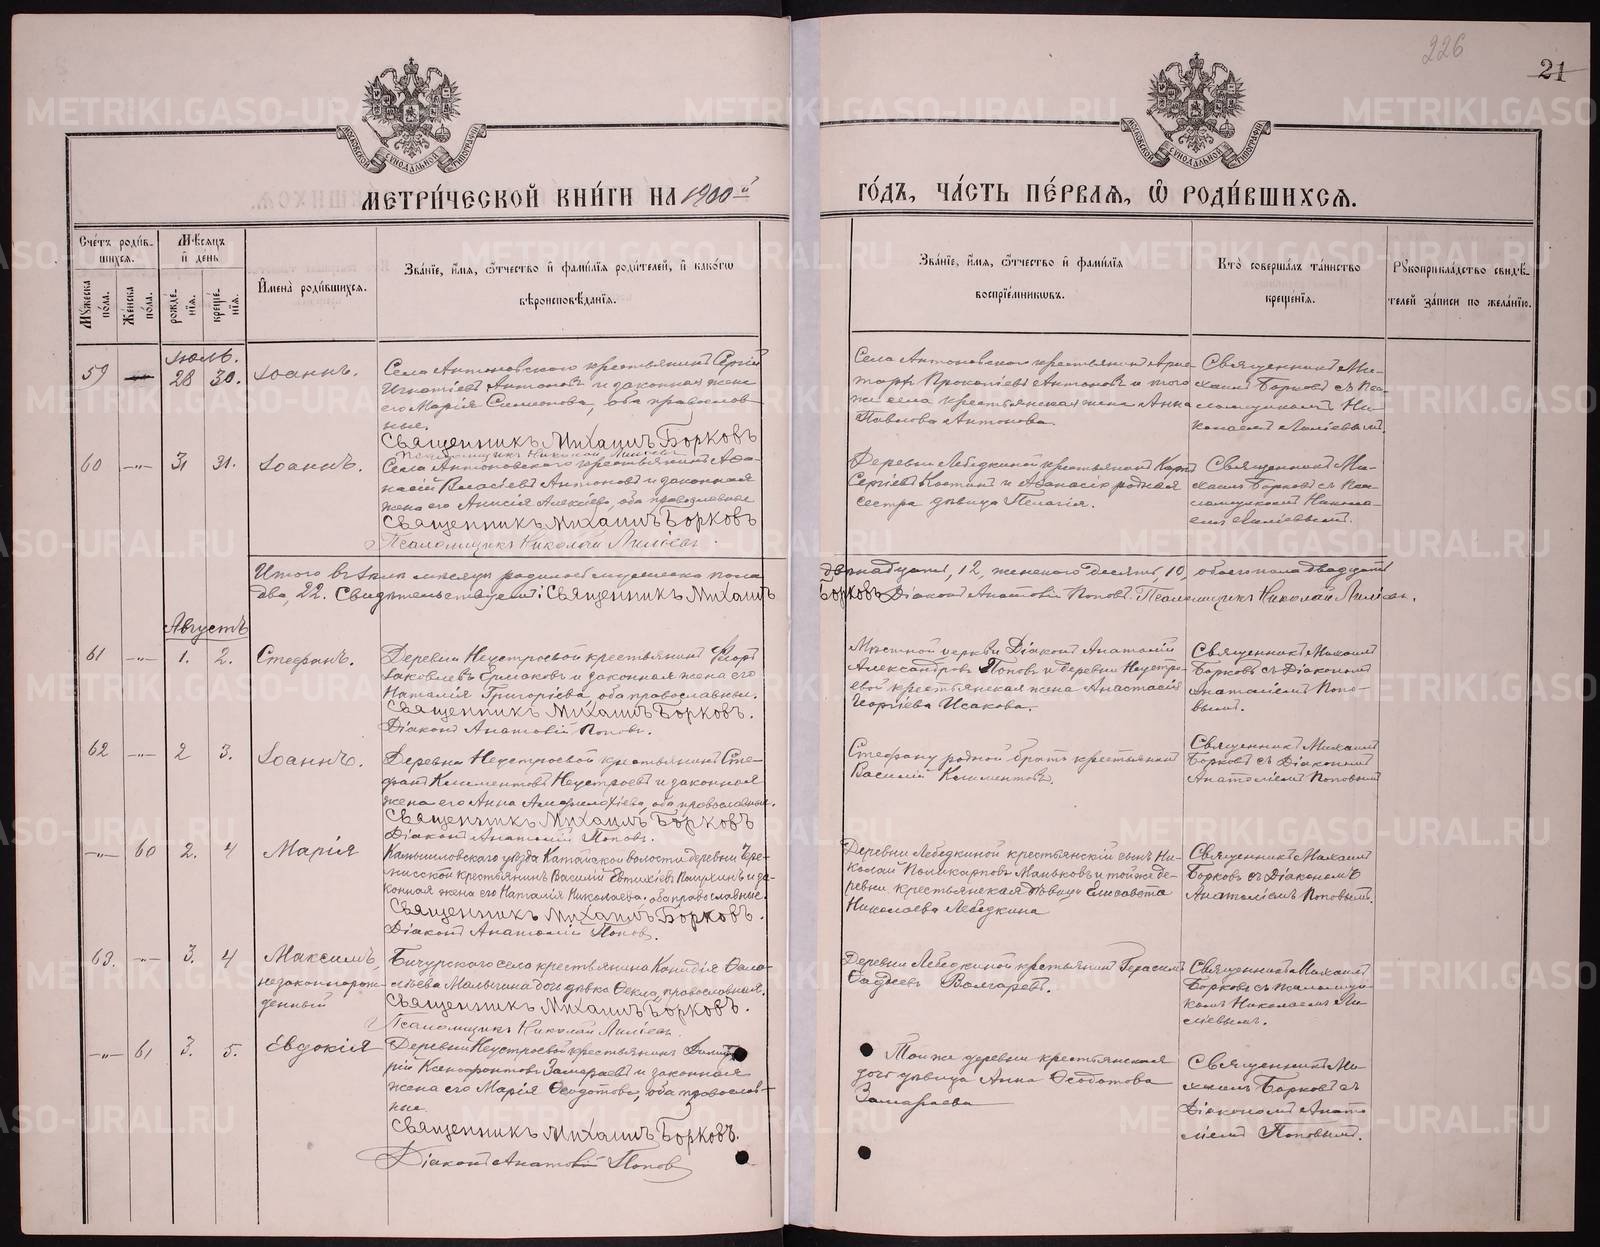 226
21
МОСКОВСКОЙ СѴНОДАЛЬНОЙ ТИПОГРАФІИ
МОСКОВСКОЙ СѴНОДАЛЬНОЙ ТИПОГРАФІИ
МЕТРИ́ЧЕСКОЙ КНИ́ГИ НА 1900-й
ГО́ДЪ, ЧА́СТЬ ПЕ́РВАЯ, Ѽ РОДИ́ВШИХСЯ.
Сче́тъ роди́в-
шихся.
Мѣ́сяцъ
и҆ де́нь
Мꙋ́жеска по́ла.
Же́нска по́ла.
рожде́-
нїѧ.
креще́-
нїѧ.
И҆мена̀ роди́вшихсѧ.
Зва́нїе, и҆́мѧ, ѻ҆́тчество и҆ фами́лїѧ роди́телей, и҆ како́гѡ
вѣроисповѣ́данїѧ.
Зва́нїе, и҆́мѧ, ѻ҆́тчество и҆ фами́лїѧ
воспрїе́мникѡвъ.
Кто̀ соверша́лъ та́инство
креще́нїѧ.
Рꙋкоприкла́дство свидѣ́-
телей за́писи по жела́нїю.
Іюль.
59
28
30.
Іоаннъ.
Села Антоновскаго крестьянинъ Сергій
Игнатіевъ Антоновъ и законная жена
его Марія Симеонова, оба православ-
ные.
Священникъ Михаилъ Борковъ
Псаломщикъ Николай Лиліевъ
Села Антоновскаго крестьянинъ
Прокопіевъ Антоновъ и того
же села крестьянская жена Анна
Павлова Антонова.
Священникъ Ми-
хаилъ Борковъ съ Пса-
ломщикомъ Ни-
колаемъ Лиліевымъ.
60
-"-
31
31.
Іоаннъ.
Села Антоновскаго крестьянинъ Аѳа-
насій Власіевъ Антоновъ и законная
жена его Анисія Алексіева, оба православные
Священникъ Михаилъ Борковъ
Псаломщикъ Николай Лиліевъ.
Деревни Лебедкиной крестьянинъ Карпъ
Сергіевъ Костинъ и Аѳанасію родная
сестра дѣвица Пелагія.
Священникъ Ми-
хаилъ Борковъ съ Пса-
ломщикомъ Никола-
емъ Лиліевымъ.
Итого въ Іюлѣ мѣсяцѣ родилось мужеска пола
двѣнадцать, 12, женскаго десять, 10, обоего пола двадцать
два, 22. Свидѣтельствуемъ: Священникъ Михаилъ
Борковъ Діаконъ Анатолій Поповъ. Псаломщикъ Николай Лиліевъ.
Августъ
61
-"-
1.
2.
Стефанъ.
Деревни Неустроевой крестьянинъ
Іаковлевъ Ермаковъ и законная жена его
Наталія Григоріева, оба православные.
Священникъ Михаилъ Борковъ.
Діаконъ Анатолій Поповъ.
Мѣстной церкви Діаконъ Анатолій
Александровъ Поповъ и деревни Неустро-
евой крестьянская жена Анастасія
Георгіева Исакова.
Священникъ Михаилъ
Борковъ съ Діакономъ
Анатоліемъ Попо-
вымъ.
62
-"-
2
3.
Іоаннъ.
Деревни Неустроевой крестьянинъ Сте-
фанъ Климентовъ Неустроевъ и законная
жена его Анна Амфилохіева, оба православные.
Священникъ Михаилъ Борковъ
Діаконъ Анатолій Поповъ.
Стефану родной братъ крестьянинъ
Василій Климентовъ.
Священникъ Михаилъ
Борковъ съ Діакономъ
Анатоліемъ Поповымъ
-"-
60
2.
4
Марія
Камышловскаго уѣзда Катайской волости деревни Чере-
мисской крестьянинъ Василій Евтихіевъ и за-
конная жена его Наталія Николаева, оба православные.
Священникъ Михаилъ Борковъ.
Діаконъ Анатолій Поповъ.
Деревни Лебедкиной крестьянскій сынъ Ни-
колай Поликарповъ Маньковъ и той же де-
ревни крестьянская дѣвица Елисавета
Николаева Лебедкина
Священникъ Михаилъ
Борковъ съ Діакономъ
Анатоліемъ Поповымъ.
63.
-"-
3.
4
Максимъ,
незаконнорож-
денный
Бичурскаго села крестьянина
Малыгина дочь дѣвка Ѳекла, православная.
Священникъ Михаилъ Борковъ.
Псаломщикъ Николай Лиліевъ.
Деревни Лебедкиной крестьянинъ Герасимъ
Ѳаддеевъ Волгаревъ.
Священникъ Михаилъ
Борковъ съ псаломщи-
комъ Николаемъ Ли-
ліевымъ.
-"-
61
3.
5.
Евдокія
Деревни Неустроевой крестьянинъ Димит-
рій Ксенофонтовъ Замараевъ и законная
жена его Марія Ѳеодотова, оба православ-
ные.
Священникъ Михаилъ Борковъ.
Діаконъ Анатолій Поповъ
Той же деревни крестьянская
дочь дѣвица Анна Ѳеодотова
Замараева
Священникъ Ми-
хаилъ Борковъ съ
Діакономъ Анато-
ліемъ Поповымъ.
METRIKI.GASO-URAL.RU